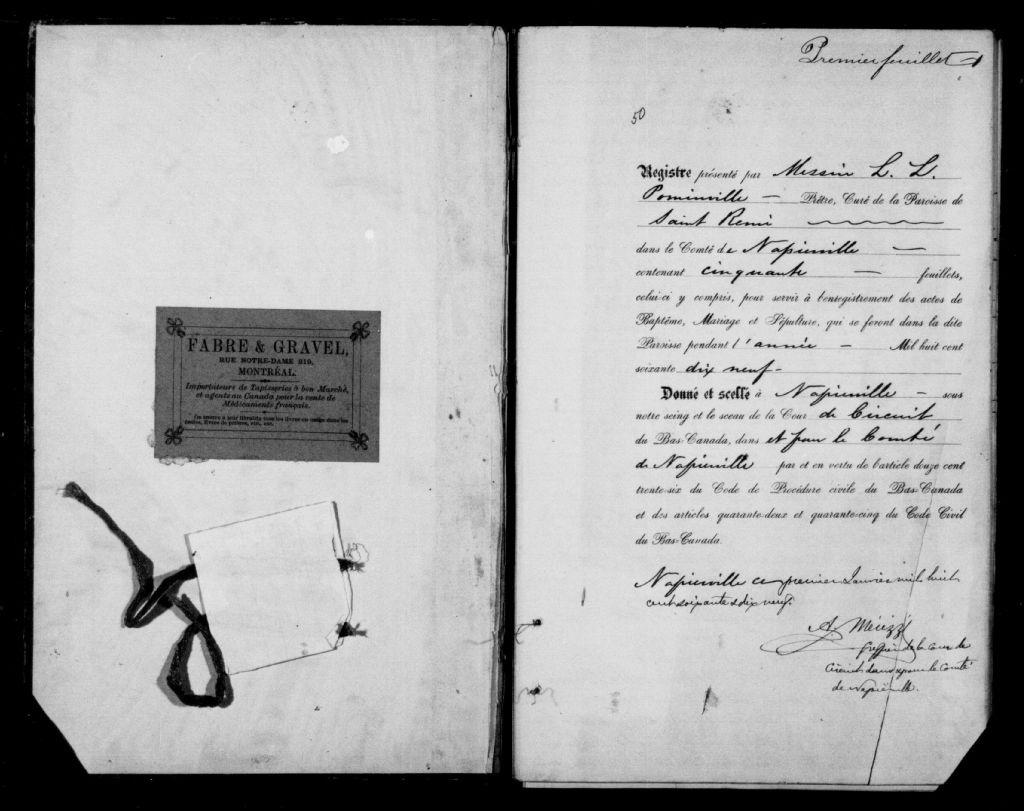 FABRE & GRAVEL,
RUE NOTRE-DAME 219,
MONTRÉAL.
Importateurs de Tapisseries à bon Marché,
et agents au Canada pour la vente de
Médicaments français.
On trouve à leur librairie tous les livres en usage dans les
écoles, livres de prières, etc., etc.
Premier feuillet
50
Registre présenté par Messire L. L.
Pominville — Prêtre, Curé de la Paroisse de
Saint Remi
dans le Comté de Napierville —
contenant cinquante — feuillets,
celui-ci y compris, pour servir à l'enregistrement des actes de
Baptême, Mariage et Sépulture, qui se feront dans la dite
Paroisse pendant l'année — Mil huit cent
soixante dix neuf -
Donné et scellé à Napierville — sous
notre seing et le sceau de la Cour de Circuit
du Bas-Canada, dans et pour le Comté
de Napierville par et en vertu de l'article douze cent
trente-six du Code de Procédure civile du Bas-Canada
et des articles quarante-deux et quarante-cinq du Code Civil
du Bas-Canada.
Napierville ce premier Janvier mil huit
cent soixante & dix neuf.
A. Merizzi
Greffier de la Cour de
Circuit dans & pour le Comté
de Napierville.